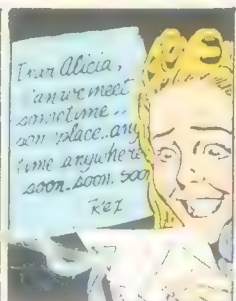 Dear Alicia,
Can we meet
sometime..
som place..any
time anywhere
soon..soon. soon
Rex